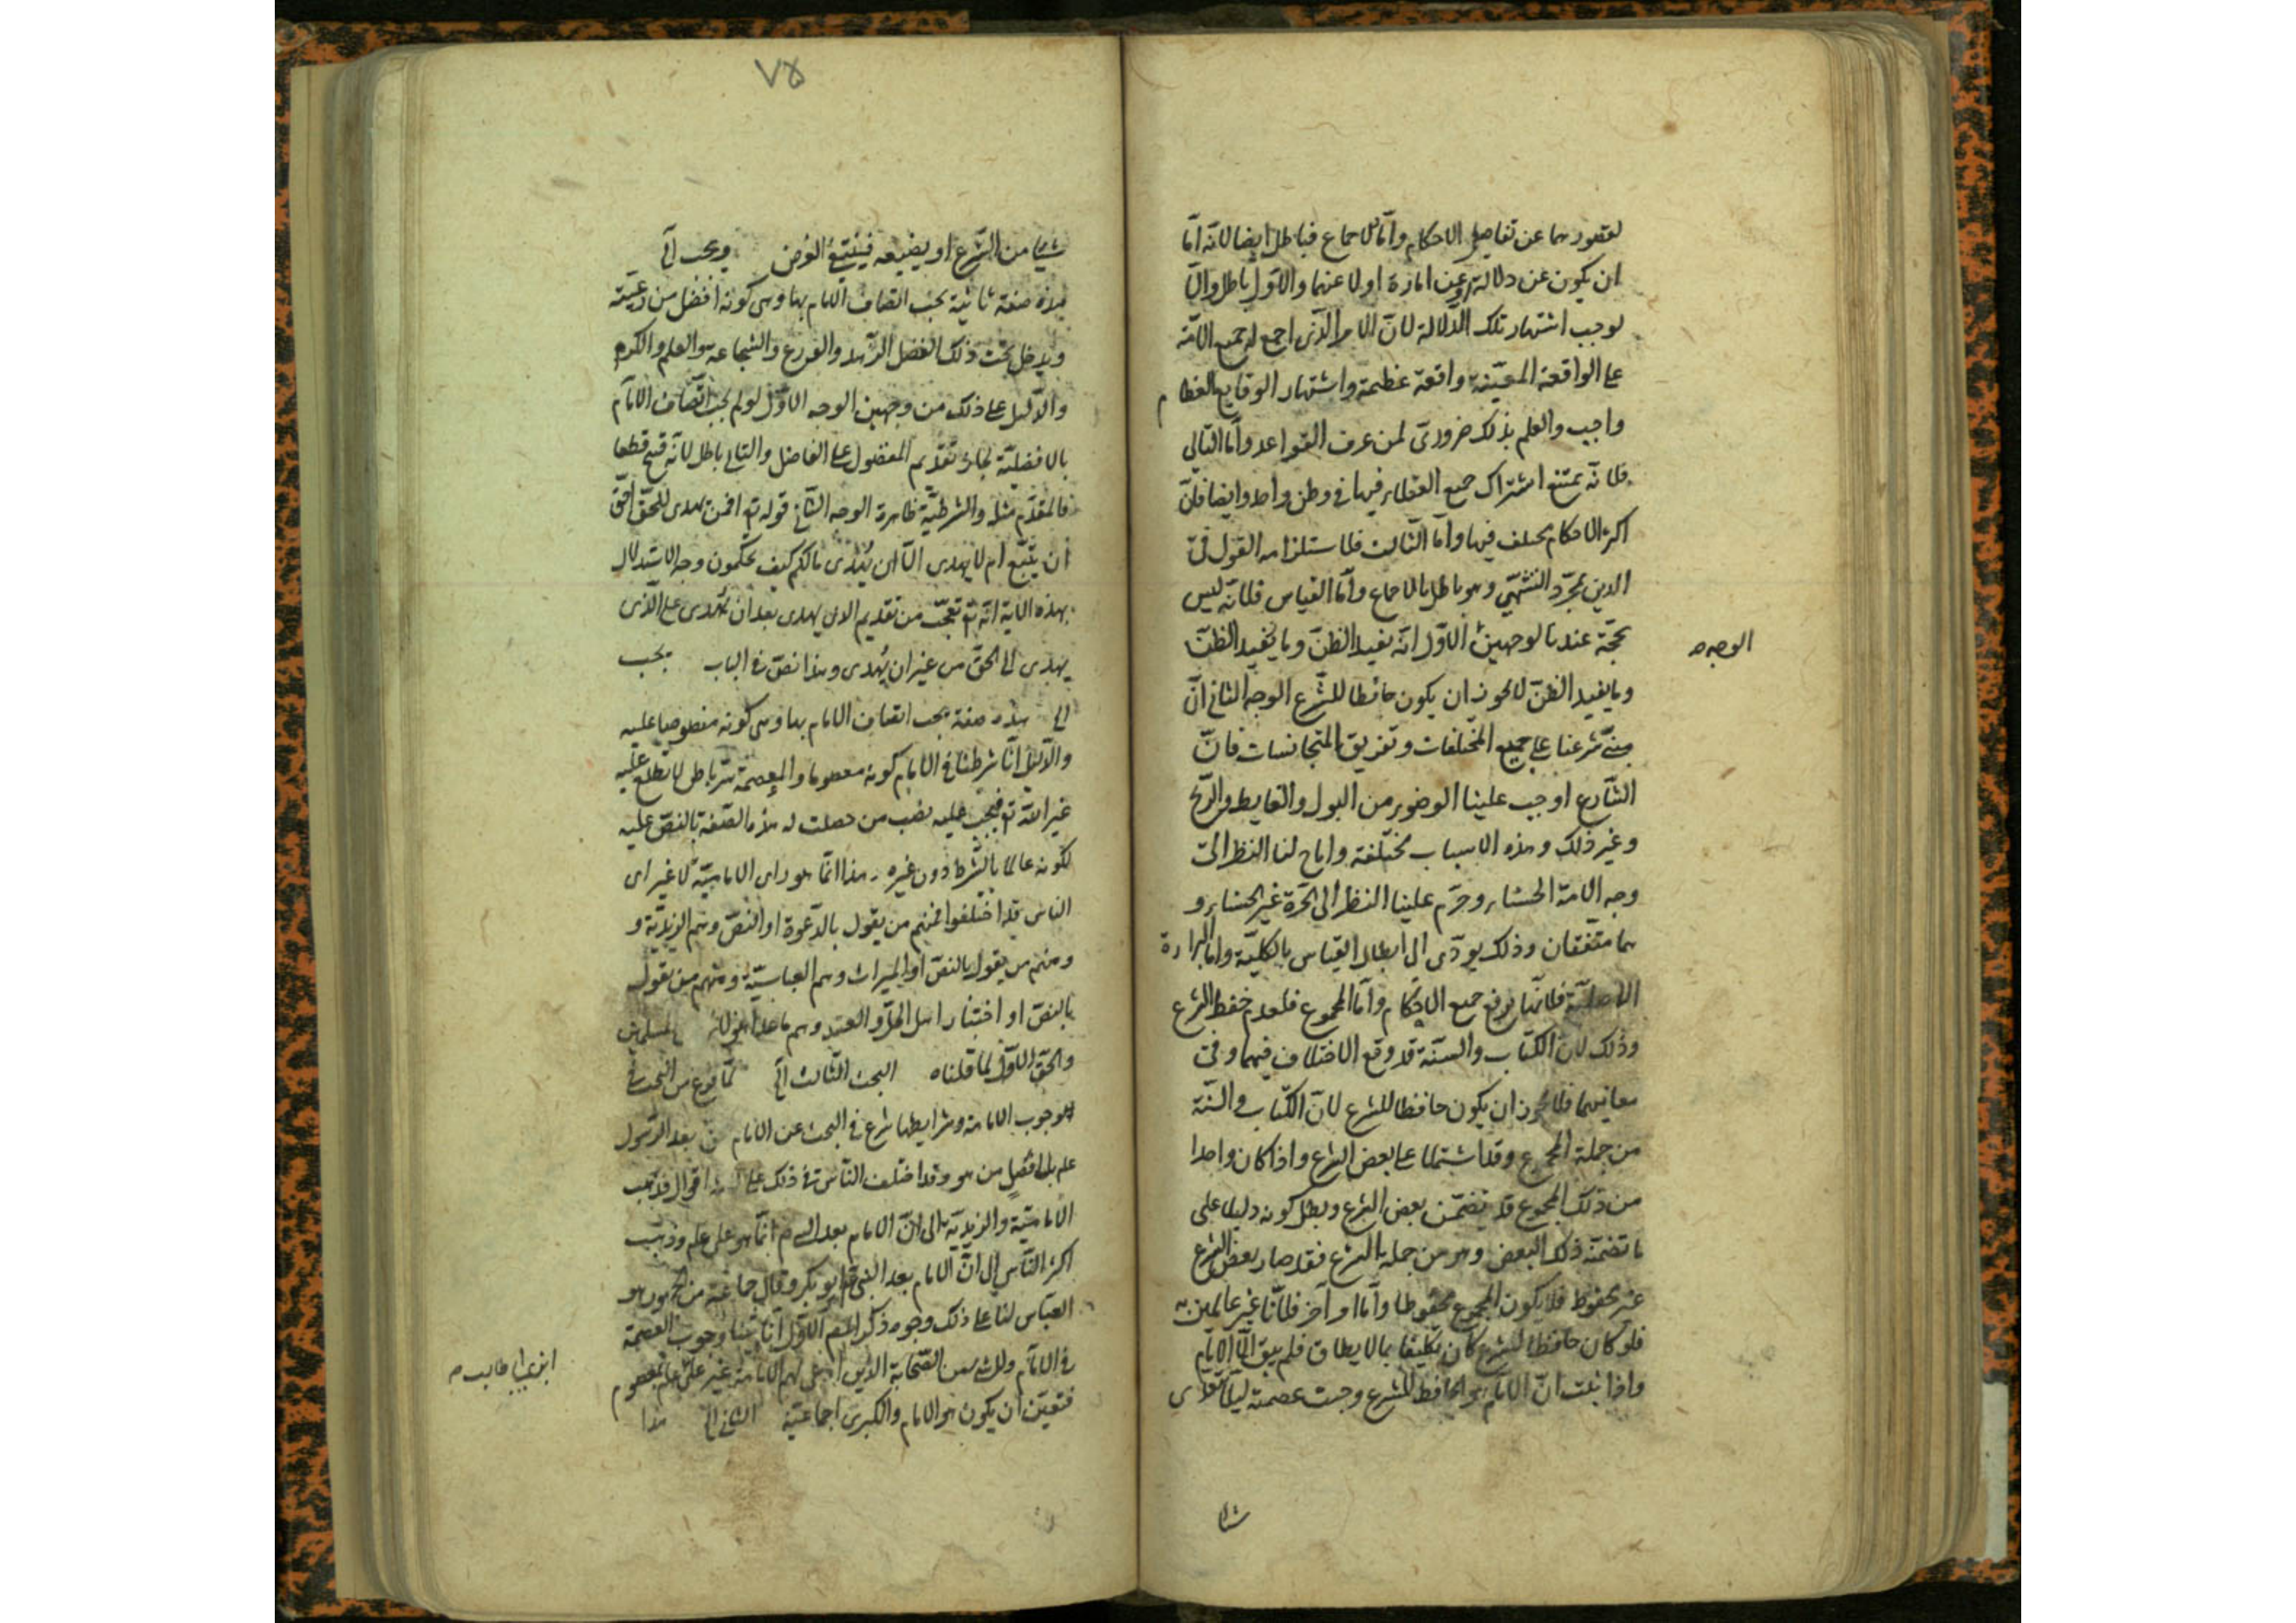 لقصورهما عن تفاصيل الاحكام واما الاجماع فباطل ايضا لانه اما
ان يكون عن دلالة او عن امارة او لا عنهما والاول باطل والا
لوجب اشتهار تلك الدلالة لان الامر الذى اجمع له جميع الامة
على الواقعة المعينة واقعة عظيمة واشتهار الوقايع العظام
واجب والعلم بذلك ضرورى لمن عرف القواعد واما التالى
فلانه يمتنع اشتراك جميع العقلاء فيها فى وطن واحد وايضا فان
اكثر الاحكام مختلف فيها واما الثالث فلاستلزامه القول فى
الدين بمجرد التشهى وهو باطل بالاجماع واما القياس فلانه ليس
بحجة عندنا لوجهين الاول انه يفيد الظن وما يفيد الظن
الوجه صح
وما يفيد الظن لا يجوز ان يكون حافظا للشرع الوجه الثانى ان
مبنى شرعنا على جميع المختلفات وتفريق المتجانسات فان
الشارع اوجب علينا الوضوء من البول والغايط والريح
وغير ذلك وهذه الاسباب مختلفة واباح لنا النظر الى
وجه الامة الحسناء وحرم علينا النظر الى الحرة غير الحسناء و
هما متفقان وذلك يودى الى ابطال القياس بالكلية واما البراءة
الاصلية فلانها يرفع جميع الاحكام واما المجموع فلعدم حفظ الشرع
وذلك لان الكتاب والسنة قد وقع الاختلاف فيهما وفى
معانيهما فلا يجوز ان يكون حافظا للشرع لان الكتاب والسنة
من جملة المجموع وقد اشتملا على بعض الشرع واذا كان واحدا
من ذلك المجموع قد يتضمن بعض الشرع وبطل كونه دليلا على
ما تضمنه ذلك البعض وهو من جملة الشرع فقد صار بعض الشرع
غير محفوظ فلا يكون المجموع محفوظا واما او آخر فلانا غير عالمين به
فلو كان حافظا للشرع كان تكليفا بما لا يطاق فلم يبق الا الامام
واذا ثبت ان الامام هو الحافظ للشرع وجبت عصمته ليلا يودى
شيئا
٧٥
شيئا من الشرع او يضيعه فينتفى الغرض ويجب آلخ
هذه صفة ثانية يجب اتصاف الامام بها وهى كونه افضل من رعيته
ويدخل تحت ذلك الفضل الزهد والورع والشجاعة والعلم والكرم
والدليل على ذلك من وجهين الوجه الاول لو لم يجب اتصاف الامام
بالافضلية لجاز تقديم المفضول على الفاضل والتالى باطل لانه قبيح قطعا
فالمقدم مثله والشرطية ظاهرة الوجه الثانى قوله تع افمن يهدى للحق احق
ان يتبع ام لا يهدى الا ان يهدى مالكم كيف تحكمون وجه الاستدلال
بهذه الاية انه تع تعجب من تقديم الذى يهدى بعد ان يهدى على الذى
يهدى الى الحق من غير ان يهدى وهذا نص فى الباب يجب
الخ هذه صفة يجب اتصاف الامام بها وهى كونه منصوصا عليه
والدليل انا شرطنا فى الامام كونه معصوما والعصمة سر باطن لا يطلع عليه
غير الله تع فيجب عليه نصب من حصلت له هذه الصفة بالنص عليه
لكونه عالما بالشرط دون غيره هذا انما هو راى الامامية لا غير اى
الناس قد اختلفوا فمنهم من يقول بالدعوة او النص وهم الزيدية و
ومنهم من يقول بالنص او الميراث وهم العباسية ومنهم من يقول
بالنص او اختيار اهل الحل والعقد وهم ما عدا هؤلاء المسلمين
والحق الاول لما قلناه البحث الثالث آلخ لما فرغ من البحث فى
وجوب الامامة وشرايطها شرع فى البحث عن الامام من بعد الرسول
علم بلا فصل من هو وقد اختلف الناس فى ذلك على اقوال فذهب
الامامية والزيدية الى ان الامام بعد الرسول ص انما هو على علم وذهب
اكثر الناس الى ان الامام بعد النبى ص ابو بكر وقال جماعة من الجمهور هو
العباس لنا على ذلك وجوه ذكر المص الاول انا بينا وجوب العصمة
فى الامام ولا شىء من الصحابة الذين ادعى لهم الامامة غير على علم بمعصوم
ابن ابى طالب صح
فتعين ان يكون هو الامام والكبرى اجماعية الثانى الخ هذا